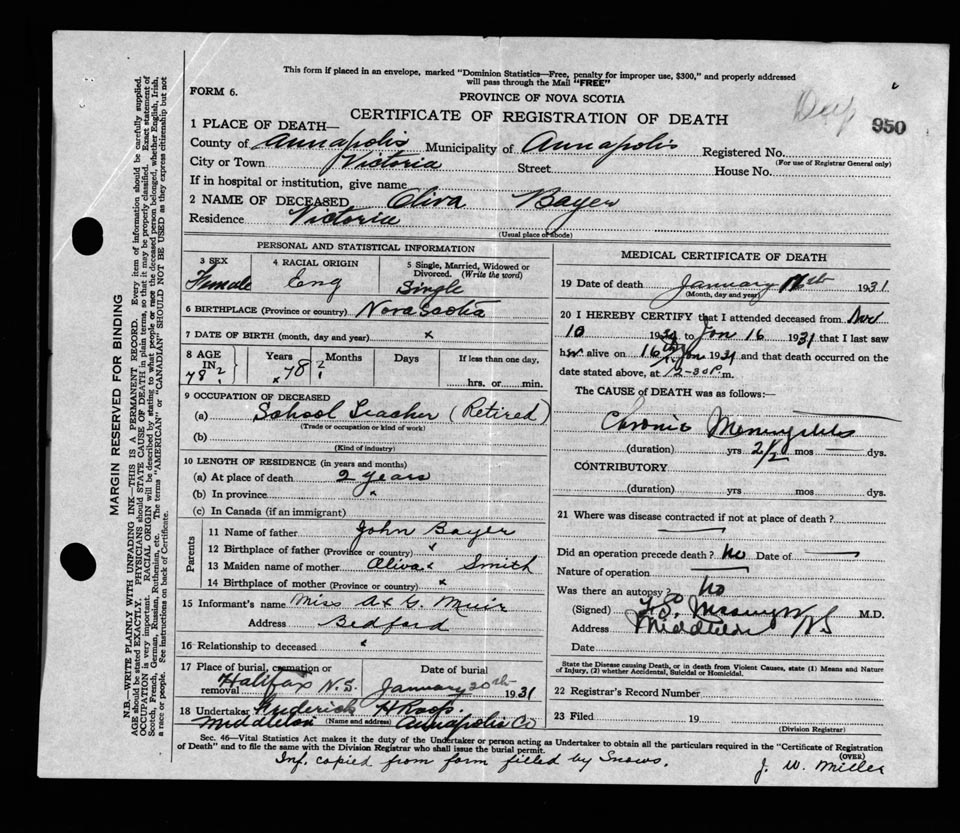 This form if placed in an envelope, marked "Dominion Statistics—Free, penalty for improper use, $300," and properly addressed
will pass through the Mail "FREE"
FORM 6.
PROVINCE OF NOVA SCOTIA
CERTIFICATE OF REGISTRATION OF DEATH
950
1 PLACE OF DEATH—
County of Annapolis Municipality of Annapolis Registered No.
(For use of Registrar General only)
City or Town Victoria Street House No.
If in hospital or institution, give name
2 NAME OF DECEASED Oliva Bayer
Residence Victoria
(Usual place of abode)
PERSONAL AND STATISTICAL INFORMATION
3 SEX Female
4 RACIAL ORIGIN Eng
5 Single, Married, Widowed or Divorced. (Write the word) Single
6 BIRTHPLACE (Province or country) Nova Scotia
7 DATE OF BIRTH (month, day and year) x
8 AGE IN 78 ? Years x 78 ? Months Days If less than one day,
hrs. or min.
9 OCCUPATION OF DECEASED
(a) School Teacher (Retired)
(Trade or occupation or kind of work)
(b)
(Kind of industry)
10 LENGTH OF RESIDENCE (in years and months)
(a) At place of death 2 years
(b) In province "
(c) In Canada (if an immigrant)
Parents
11 Name of father John Bayer
12 Birthplace of father (Province or country) x
13 Maiden name of mother Oliva Smith
14 Birthplace of mother (Province or country) x
15 Informant's name Miss A. G. Muir
Address Bedford
16 Relationship to deceased x
17 Place of burial, cremation or removal Halifax N.S. Date of burial January 20th 1931
18 Undertaker Frederick H Roop
Middleton (Name and address) Annapolis Co
MEDICAL CERTIFICATE OF DEATH
19 Date of death January 16th 1931
(Month, day and year)
20 I HEREBY CERTIFY that I attended deceased from Nov
10 1930 to Jan 16 1931 that I last saw
her alive on 16 Jan 1931 and that death occurred on the
date stated above, at 12-30 P.m.
The CAUSE of DEATH was as follows:—
Chronic Meningitis
(duration) yrs 2½ mos — dys.
CONTRIBUTORY
(duration) yrs mos dys.
21 Where was disease contracted if not at place of death?
Did an operation precede death? No Date of —
Nature of operation —
Was there an autopsy? No
(Signed) M.D.
Address Middleton NS
Date
State the Disease causing Death, or in death from Violent Causes, state (1) Means and Nature
of Injury, (2) whether Accidental, Suicidal or Homicidal.
22 Registrar's Record Number
23 Filed 19
(Division Registrar)
Sec. 46—Vital Statistics Act makes it the duty of the Undertaker or person acting as Undertaker to obtain all the particulars required in the "Certificate of Registration
of Death" and to file the same with the Division Registrar who shall issue the burial permit.
(OVER)
Inf. copied from form filled by Snows.
J. W. Miller
MARGIN RESERVED FOR BINDING
N.B.—WRITE PLAINLY WITH UNFADING INK—THIS IS A PERMANENT RECORD. Every item of information should be carefully supplied.
AGE should be stated EXACTLY. PHYSICIANS should STATE CAUSE OF DEATH in plain terms, so that it may be properly classified. Exact statement of
OCCUPATION is very important. RACIAL ORIGIN will be described by stating to what people or race the deceased person belonged, whether English, Irish,
Scotch, French, German, Russian, Ruthenian, etc. The terms "AMERICAN" or "CANADIAN" SHOULD NOT BE USED as they express citizenship but not
a race or people. See instructions on back of Certificate.